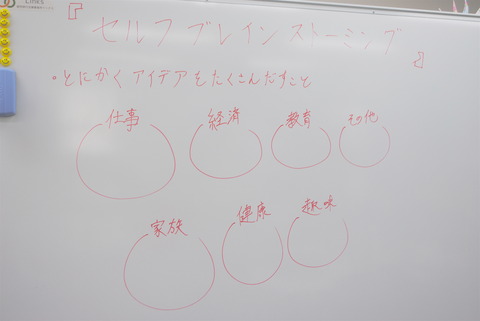 Links
『セルフブレインストーミング』
・とにかくアイデアをたくさんだすこと
仕事 経済 教育 その他
家族 健康 趣味